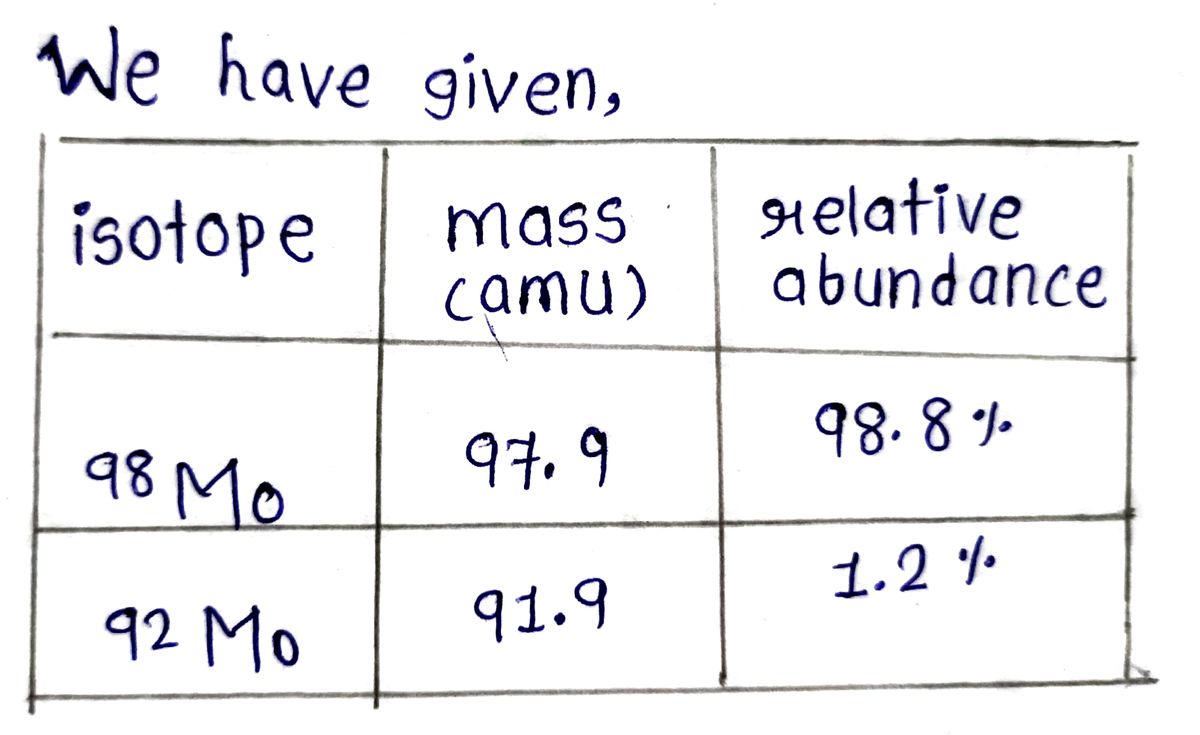 We have given,
isotope mass (amu) relative abundance
98 Mo 97.9 98.8 %
92 Mo 91.9 1.2 %